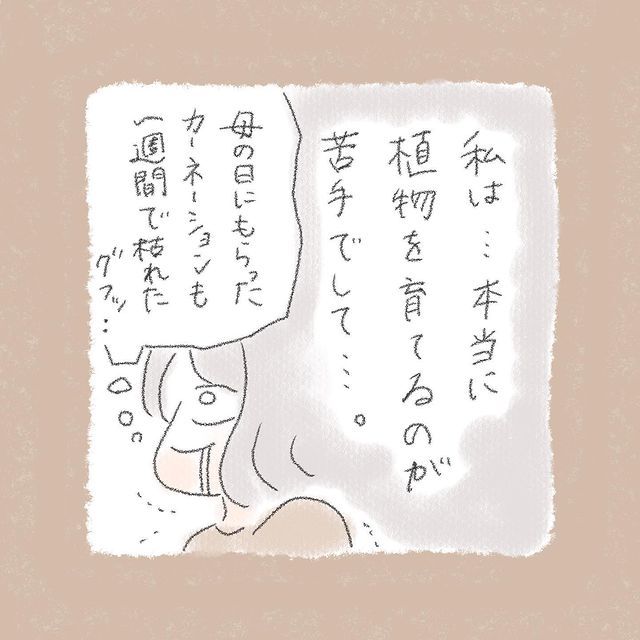 私は…本当に
植物を育てるのが
苦手でして…。
母の日にもらった
カーネーションも
一週間で枯れた
グフッ…